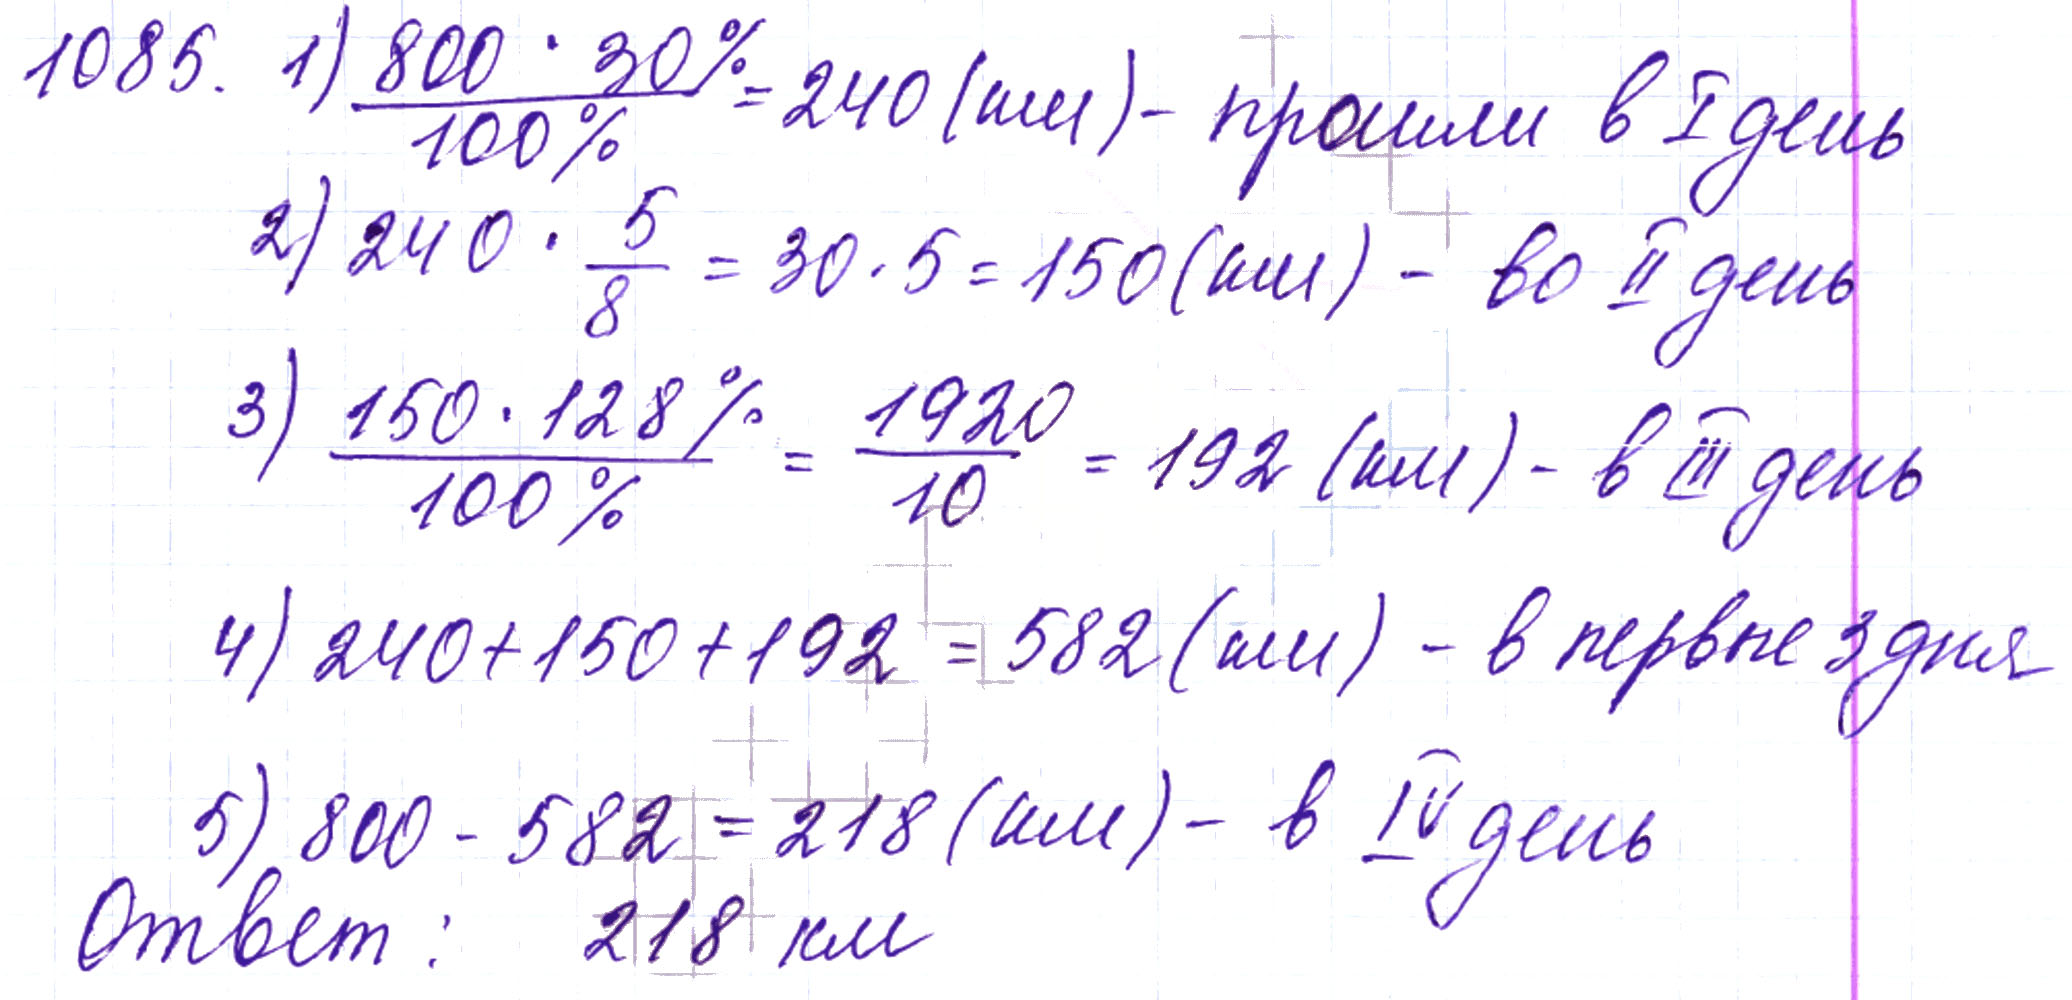 1085. 1) 800 · 30% / 100% = 240 (км) - прошли в I день
2) 240 · 5/8 = 30 · 5 = 150 (км) - во II день
3) 150 · 128% / 100% = 1920/10 = 192 (км) - в III день
4) 240 + 150 + 192 = 582 (км) - в первые 3 дня
5) 800 - 582 = 218 (км) - в IV день
Ответ: 218 км